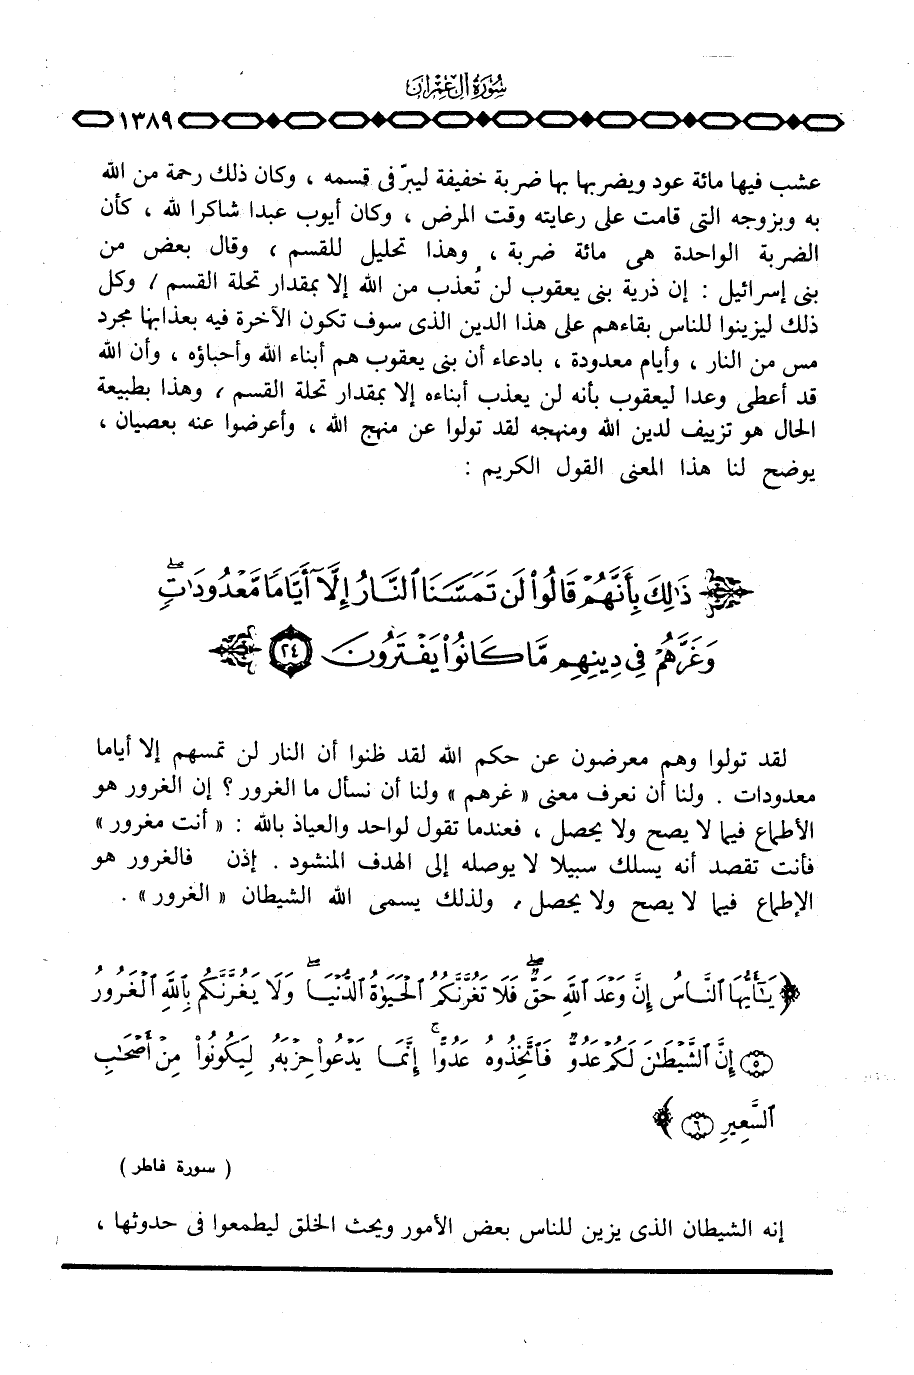 سُورَةُ آلِ عِمْرَانَ
١٣٨٩
عشب فيها مائة عود ويضربها بها ضربة خفيفة ليبرّ فى قسمه ، وكان ذلك رحمة من الله
به وبزوجه التى قامت على رعايته وقت المرض ، وكان أيوب عبدا شاكرا لله ، كأن
الضربة الواحدة هى مائة ضربة ، وهذا تحليل للقسم ، وقال بعض من
بنى إسرائيل : إن ذرية بنى يعقوب لن تُعذب من الله إلا بمقدار تحلة القسم ، وكل
ذلك ليزينوا للناس بقاءهم على هذا الدين الذى سوف تكون الآخرة فيه بعذابها مجرد
مس من النار ، وأيام معدودة ، بادعاء أن بنى يعقوب هم أبناء الله وأحباؤه ، وأن الله
قد أعطى وعدا ليعقوب بأنه لن يعذب أبناءه إلا بمقدار تحلة القسم ، وهذا بطبيعة
الحال هو تزييف لدين الله ومنهجه لقد تولوا عن منهج الله ، وأعرضوا عنه بعصيان ،
يوضح لنا هذا المعنى القول الكريم :
﴿ ذَٰلِكَ بِأَنَّهُمْ قَالُوا۟ لَن تَمَسَّنَا ٱلنَّارُ إِلَّآ أَيَّامًا مَّعْدُودَٰتٍ ۖ
وَغَرَّهُمْ فِى دِينِهِم مَّا كَانُوا۟ يَفْتَرُونَ ٢٤ ﴾
لقد تولوا وهم معرضون عن حكم الله لقد ظنوا أن النار لن تمسهم إلا أياما
معدودات . ولنا أن نعرف معنى « غرهم » ولنا أن نسأل ما الغرور ؟ إن الغرور هو
الأطماع فيما لا يصح ولا يحصل ، فعندما تقول لواحد والعياذ بالله : « أنت مغرور »
فأنت تقصد أنه يسلك سبيلا لا يوصله إلى الهدف المنشود . إذن فالغرور هو
الإطماع فيما لا يصح ولا يحصل ، ولذلك يسمى الله الشيطان « الغرور » .
﴿ يَٰٓأَيُّهَا ٱلنَّاسُ إِنَّ وَعْدَ ٱللَّهِ حَقٌّ ۖ فَلَا تَغُرَّنَّكُمُ ٱلْحَيَوٰةُ ٱلدُّنْيَا ۖ وَلَا يَغُرَّنَّكُم بِٱللَّهِ ٱلْغَرُورُ
٥ إِنَّ ٱلشَّيْطَٰنَ لَكُمْ عَدُوٌّ فَٱتَّخِذُوهُ عَدُوًّا ۚ إِنَّمَا يَدْعُوا۟ حِزْبَهُۥ لِيَكُونُوا۟ مِنْ أَصْحَٰبِ
ٱلسَّعِيرِ ٦ ﴾
( سورة فاطر )
إنه الشيطان الذى يزين للناس بعض الأمور ويحث الخلق ليطمعوا فى حدوثها ،